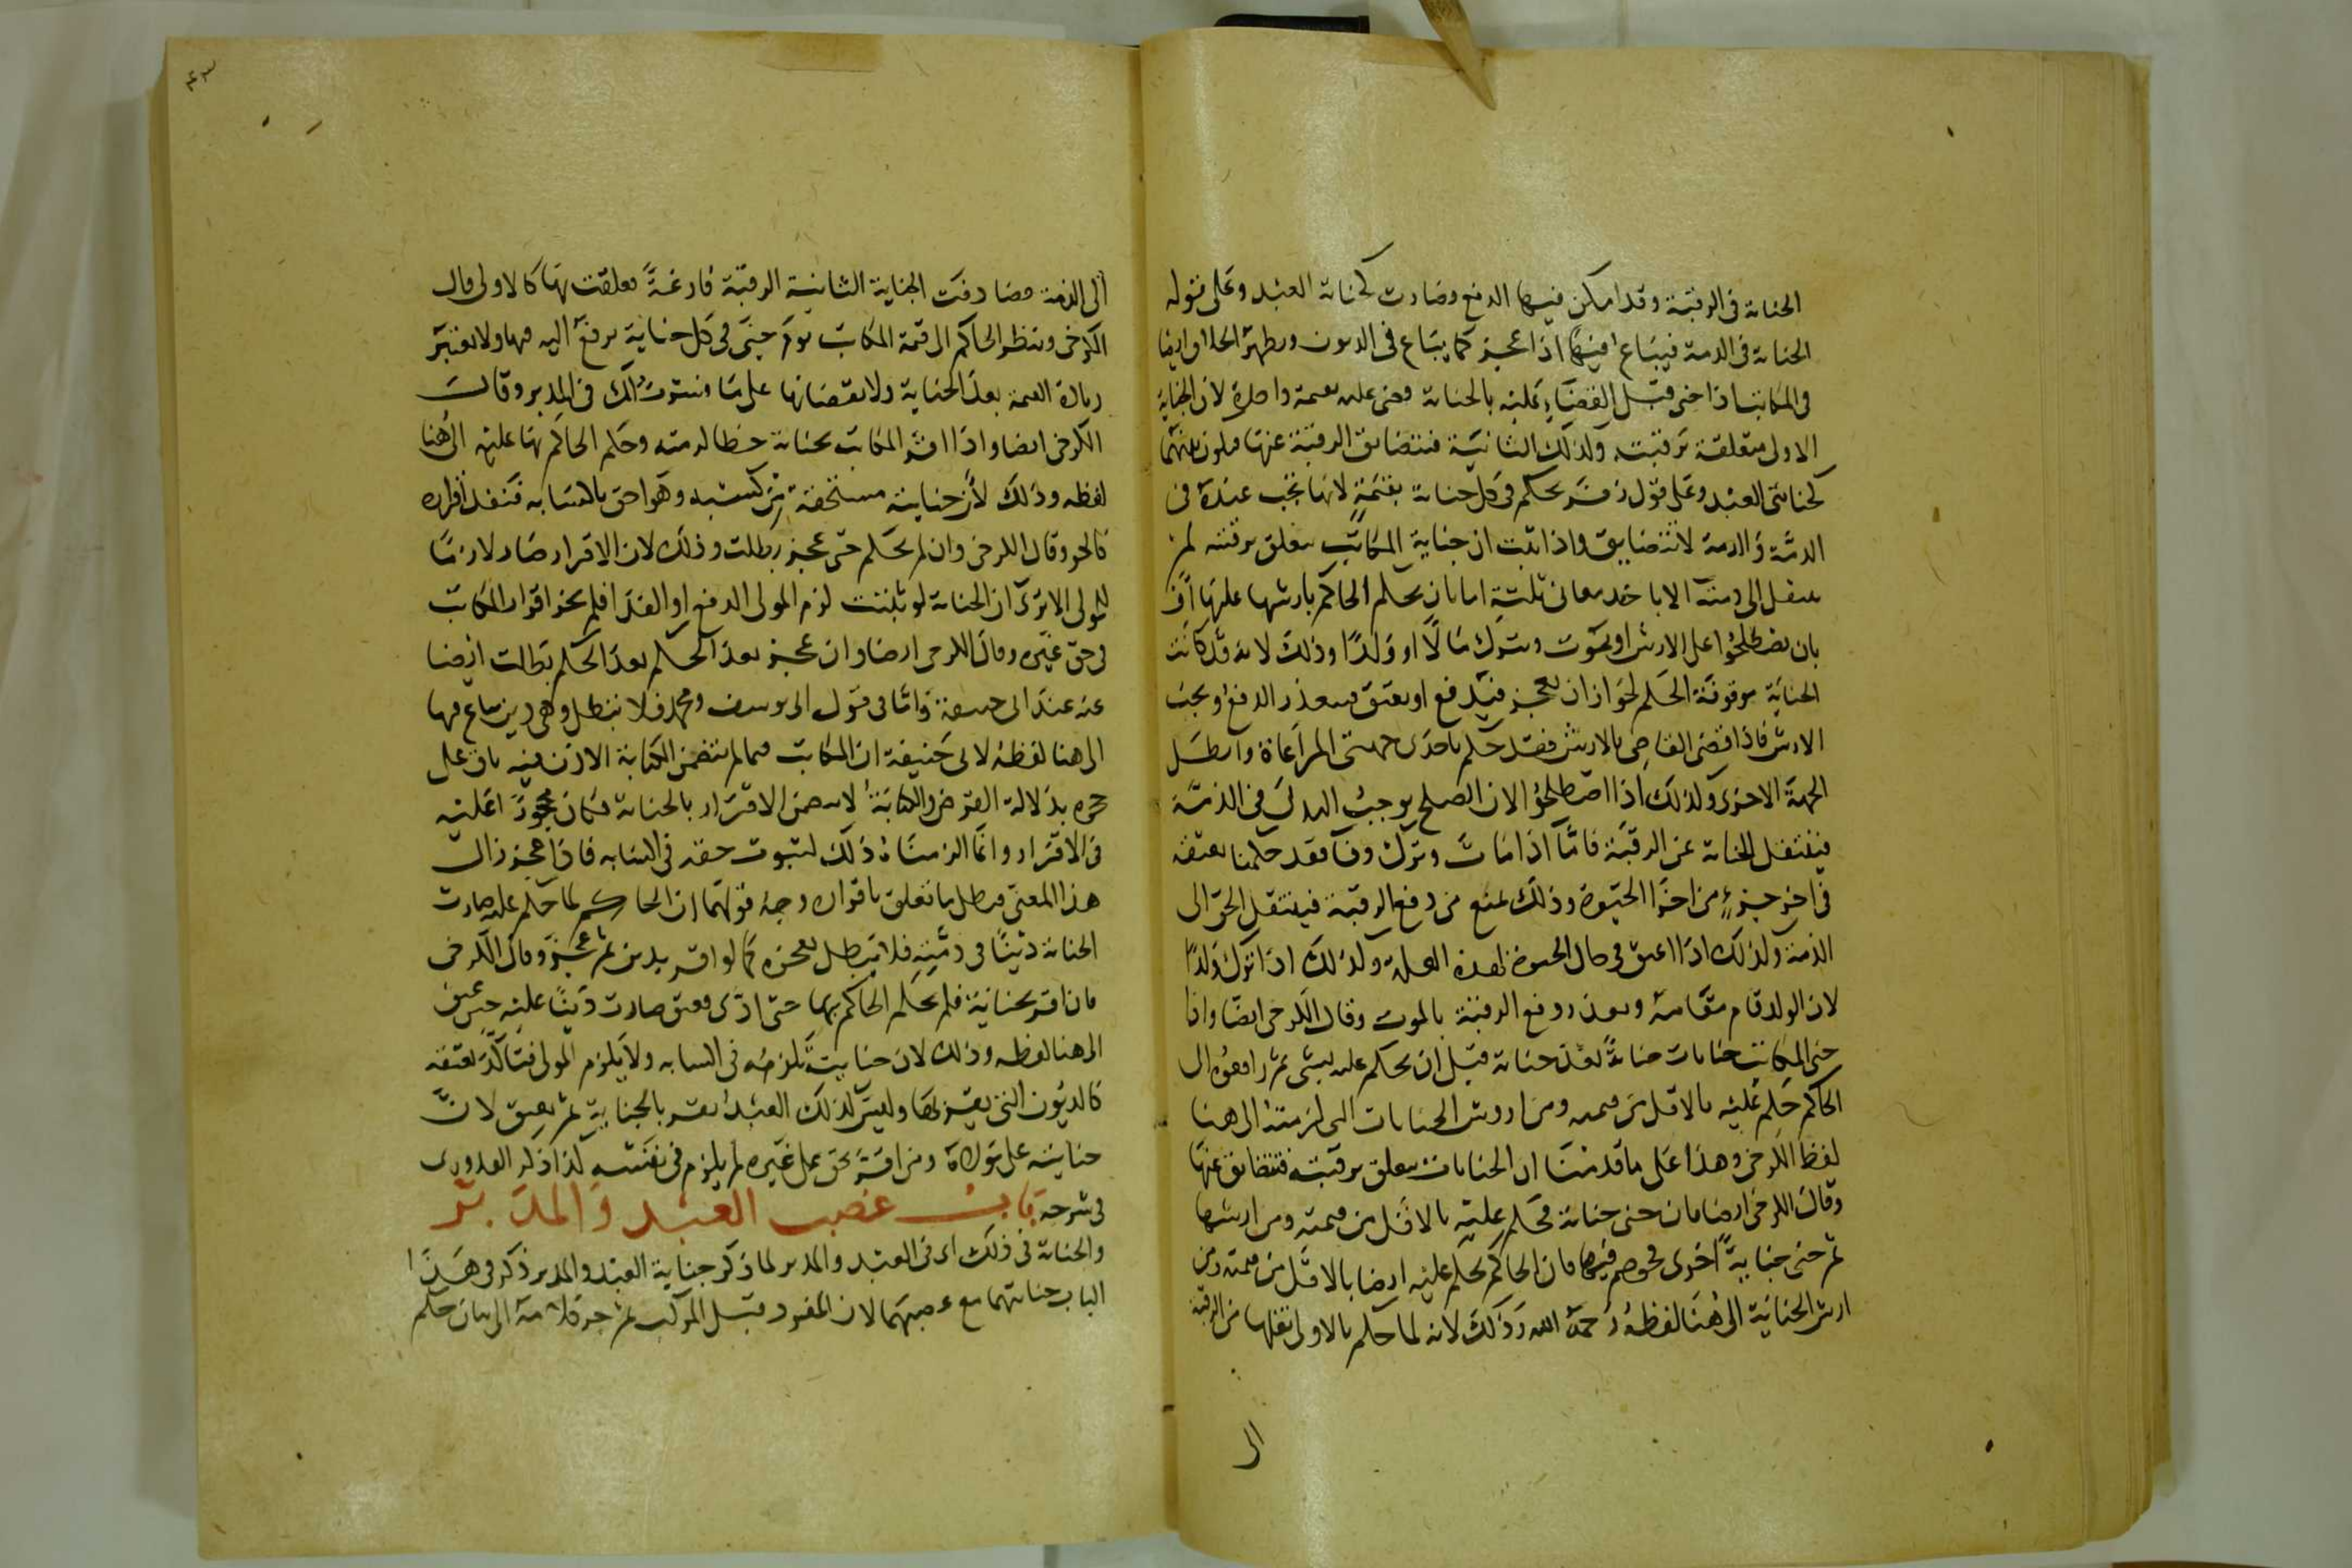 الجناية في الرقبة وقد امكن فيها الدفع وصارت كجناية العبد وعلى قوله
الجناية في الذمة فيباع فيها اذا عجز كما يباع في الديون ويظهر الخلاف ايضا
في المكاتب اذا جنى قبل القضاء عليه بالجناية وقضى عليه بقيمة واحدة لان الجناية
الاولى متعلقة برقبته وكذلك الثانية فتتضايق الرقبة عنها فيكون بينهما
كجنايتي العبد وعلى قول زفر يحكم في كل جناية بقيمة لانها تجب عنده في
الذمة والذمة لا تتضايق واذا ثبت ان جناية المكاتب تتعلق برقبته لم
تنتقل الى ذمته الا باحد معان ثلثة اما بان يحكم الحاكم بارشها عليها او
بان يصطلحوا على الارش او يموت ويترك مالا او ولدا وذلك لانه قد كانت
الجناية موقوفة الحكم لجواز ان يعجز فيدفع او يعتق فيتعذر الدفع ويجب
الارش فاذا قضى القاضي بالارش فقد حكم باحدى جهتي المراعاة وابطل
الجهة الاخرى وكذلك اذا اصطلحوا لان الصلح يوجب البدل في الذمة
فينتقل الجناية عن الرقبة فاما اذا مات وترك وفا فقد حكمنا بعتقه
في اخر جزء من اجزا الحيوة وذلك يمنع من دفع الرقبة فينتقل الحق الى
الذمة وكذلك اذا اعتق في حال الحيوة لهذه العلة وكذلك اذا ترك ولدا
لان الولد قام مقامه وتعذر دفع الرقبة بالموت وقال الكرخي ايضا واذا
جنى المكاتب جنايات جناية بعد جناية قبل ان يحكم عليه بشي ثم رافعوه الى
الحاكم حكم عليه بالاقل من قيمته ومن اروش الجنايات التي لزمته الى هنا
لفظ الكرخي وهذا على ما قدمنا ان الجنايات تتعلق برقبته فتتضايق عنها
وقال الكرخي ايضا فان جنى جناية فحكم عليه بالاقل من قيمته ومن ارشها
ثم جنى جناية اخرى فخوصم فيها فان الحاكم يحكم عليه ايضا بالاقل من قيمته ومن
ارش الجناية الى هنا لفظه رحمه الله وذلك لانه لما حكم بالاولى نقلها من الرقبة
الى
الى الذمة فصادفت الجناية الثانية الرقبة فارغة فعلقت بها كالاولى قال
الكرخي وينظر الحاكم الى قيمة المكاتب يوم جنى في كل جناية يرفع اليه فيها ولا يعتبر
زيادة القيمة بعد الجناية ولا نقصانها على ما فسرت لك في المدبر وقال
الكرخي ايضا واذا اقر المكاتب بجناية خطا لزمته وحكم الحاكم بها عليه الى هنا
لفظه وذلك لان جنايته مستحقة من كسبه وهو احق باكسابه فنفذ اقراره
كالحر وقال الكرخي وان لم يحكم حتى عجز بطلت وذلك لان الاقرار صار لازما
للمولى الا ترى ان الجناية لو ثبتت لزم المولى الدفع او الفدا فلم يجز اقرار المكاتب
في حق غيره وقال الكرخي ايضا وان عجز بعد الحكم بعد الحكم بطلت ايضا
عنه عند ابي حنيفة واما في قول ابي يوسف ومحمد فلا تبطل وهي دين يباع فيها
الى هنا لفظه لابي حنيفة ان المكاتب فيما لم تتضمن الكتابة الاذن فيه باق على
حجره بدلالة القرض والكتابة لا تتضمن الاقرار بالجناية فكان محجورا عليه
في الاقرار وانما الزمناه ذلك لثبوت حقه في اكسابه فاذا عجز زال
هذا المعنى فبطل ما تعلق باقراره وجه قولهما ان الحاكم لما حكم عليه صارت
الجناية دينا في ذمته فلا تبطل بعجزه كما لو اقر بدين ثم عجز وقال الكرخي
فان اقر بجناية فلم يحكم الحاكم بها حتى ادى فعتق صارت دينا عليه حين عتق
الى هنا لفظه وذلك لان جنايته تلزمه في اكسابه ولا يلزم المولى فتاكد بعتقه
كالديون التي يقر بها وليس كذلك العبد يقر بالجناية ثم يعتق لان
جنايته على مولاه ومن اقر بحق على غيره لم يلزم في نفسه كذا ذكر القدوري
في شرحه باب غصب العبد والمدبر
والجناية في ذلك اي في العبد والمدبر لما ذكر جناية العبد والمدبر ذكر في هذا
الباب جنايتهما مع غصبهما لان المفرد قبل المركب ثم جر كلامه الى بيان حكم